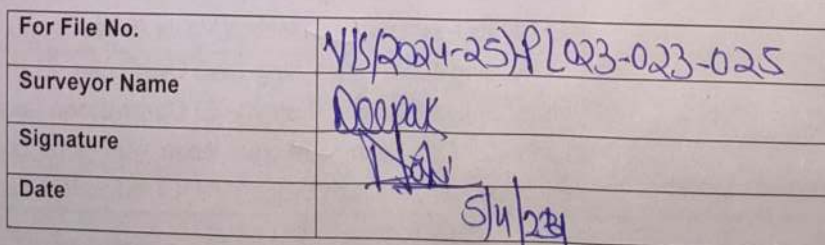 For File No. VIS(2024-25)-PL023-023-025
Surveyor Name Deepak
Signature
Date 5/4/24